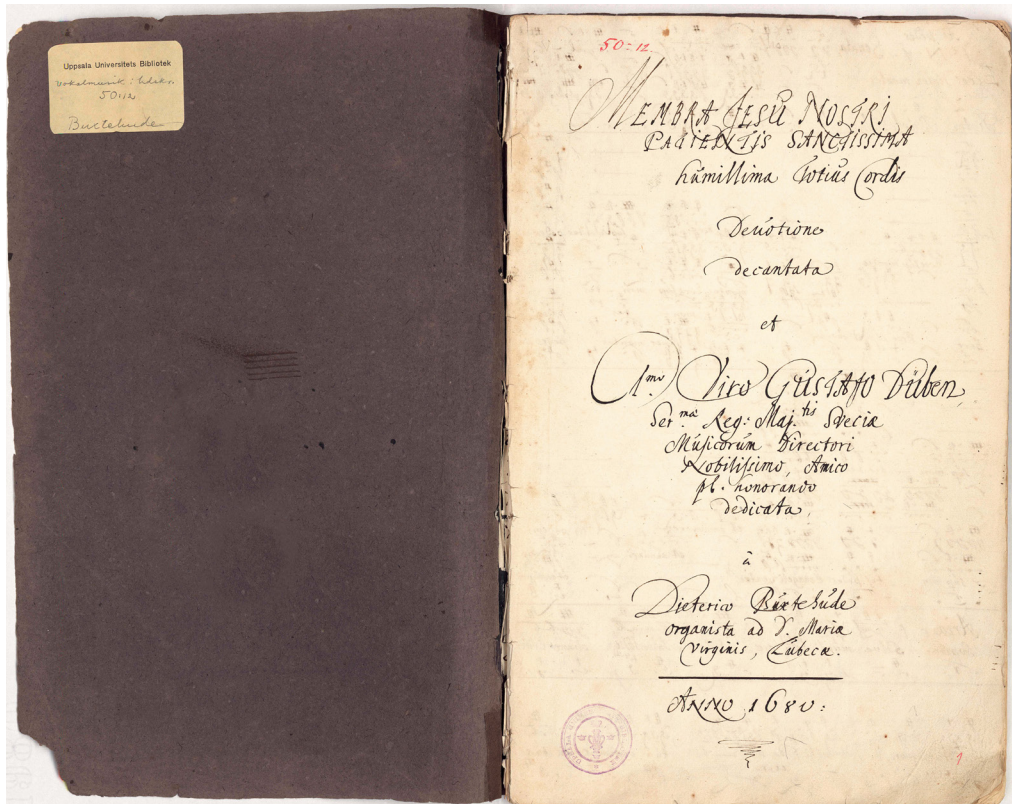 Uppsala Universitets Bibliotek
vokalmusik i hdskr.
50:12
Buxtehude
50:12
MEMBRA JESU NOSTRI
PATIENTIS SANCTISSIMA
humillima Totius Cordis
Devotione
decantata
et
Clmo Viro GUSTAVO Düben,
Ser.mæ Reg: Maj.tis Sveciæ
Musicorum Directori
Nobilissimo, Amico
pl. honorando
dedicata,
à
Dieterico Buxtehude
organista ad S. Mariæ
Virginis, Lubecæ.
ANNO 1680:
1